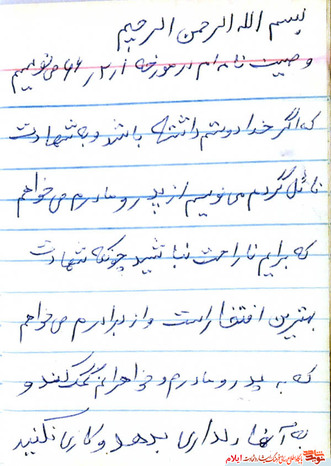 بسم الله الرحمن الرحیم
وصیت نامه ام در مورخه ۶۶/۲/ می نویسم
که اگر خدا دوستم داشته باشد و به شهادت
نائل گردم می نویسم از پدر و مادرم می خواهم
که برایم ناراحت نباشید چونکه شهادت
بهترین افتخار است و از برادرم می خواهم
که به پدر و مادرم و خواهرانم کمک کند و
به آنها دلداری بدهد و کاری نکنید
ایلام